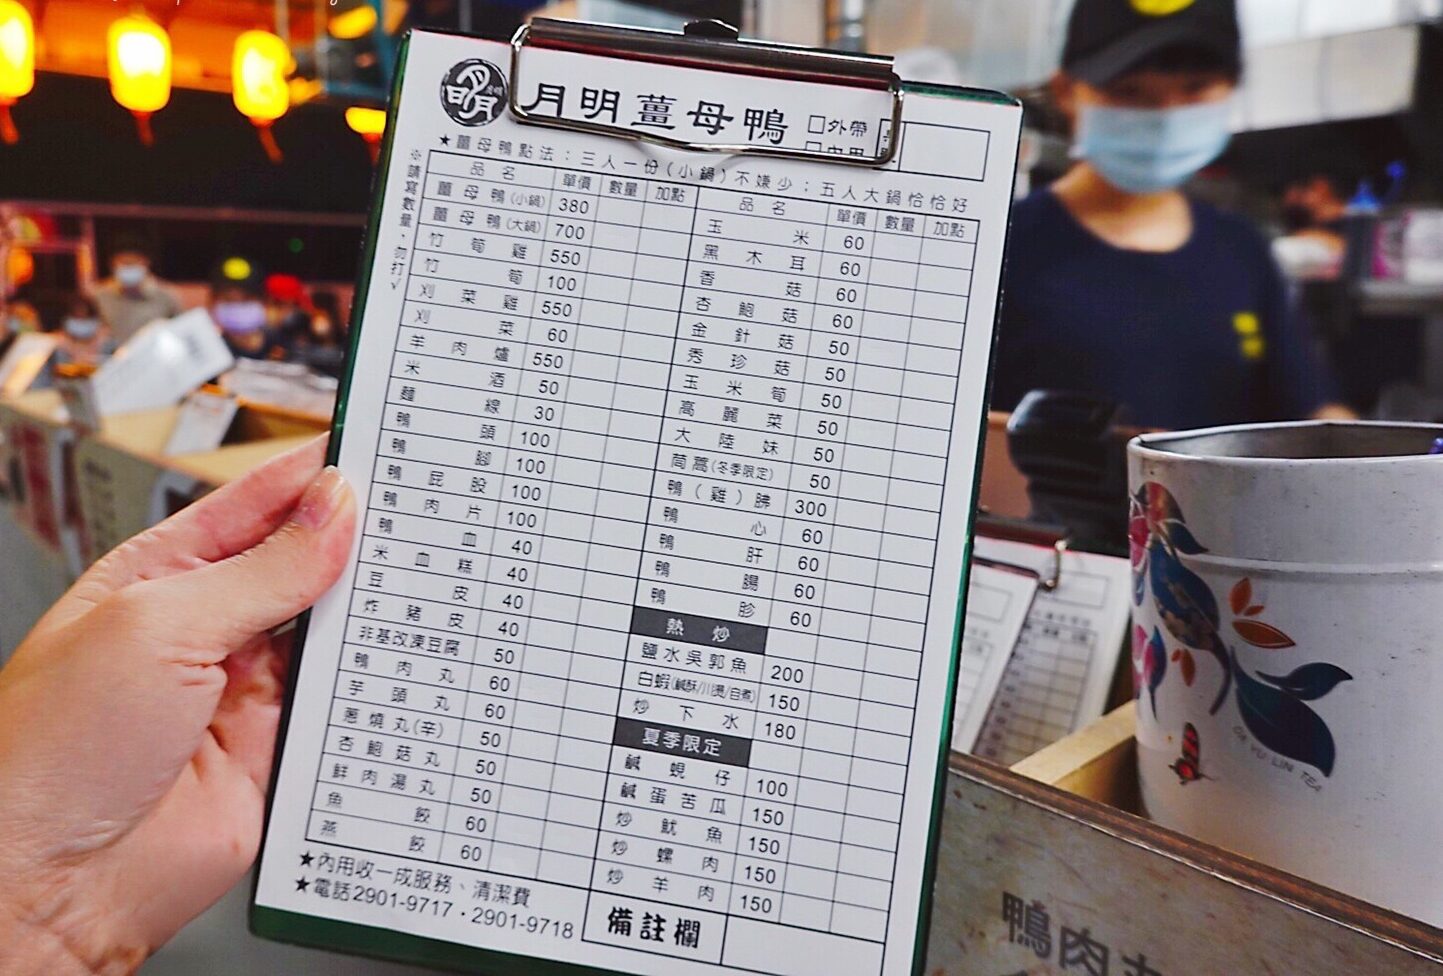 月明
月明薑母鴨
□外帶
□內用
★薑母鴨點法：三人一份(小鍋)不嫌少；五人大鍋恰恰好
※請寫數量，勿打✓
品名 單價 數量 加點
薑母鴨(小鍋) 380
薑母鴨(大鍋) 700
竹筍雞 550
竹筍 100
刈菜雞 550
刈菜 60
羊肉爐 550
米酒 50
麵線 30
鴨頭 100
鴨腳 100
鴨屁股 100
鴨肉片 100
鴨血 40
米血糕 40
豆皮 40
炸豬皮 40
非基改凍豆腐 50
鴨肉丸 60
芋頭丸 60
蔥燒丸(辛) 50
杏鮑菇丸 50
鮮肉湯丸 50
魚餃 60
燕餃 60
品名 單價 數量 加點
玉米 60
黑木耳 60
香菇 60
杏鮑菇 60
金針菇 50
秀珍菇 50
玉米筍 50
高麗菜 50
大陸妹 50
茼蒿(冬季限定) 50
鴨(雞)腱 300
鴨心 60
鴨肝 60
鴨腸 60
鴨胗 60
熱炒
鹽水吳郭魚 200
白蝦(鹹酥/川燙/自煮) 150
炒下水 180
夏季限定
鹹蜆仔 100
鹹蛋苦瓜 150
炒魷魚 150
炒螺肉 150
炒羊肉 150
★內用收一成服務、清潔費
★電話2901-9717·2901-9718
備註欄
鴨肉丸
OR YU LIN TEA